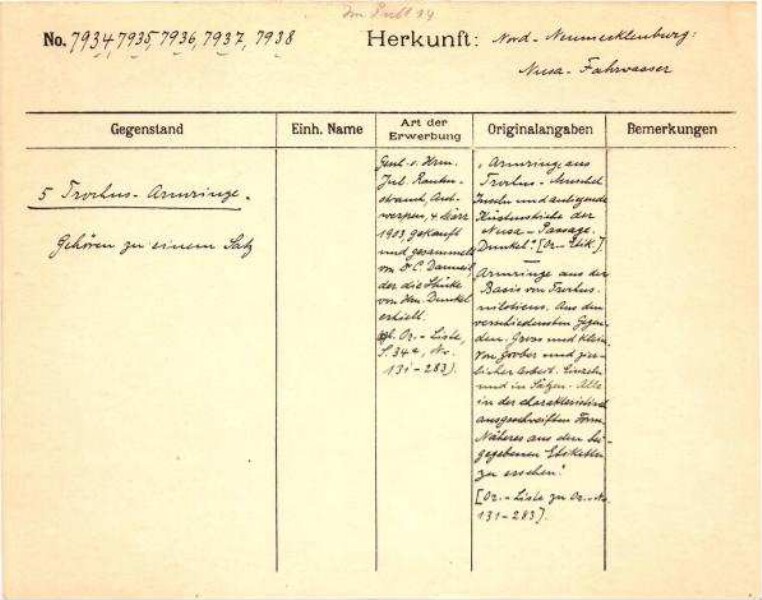 No. 7934, 7935, 7936, 7937, 7938
Herkunft: Nord-Neumecklenburg:
Nusa-Fahrwasser
Gegenstand
Einh. Name
Art der
Erwerbung
Originalangaben
Bemerkungen
5 Trochus-Armringe.
Gehören zu einem Satz
Gesch. v. Hrn.
Jul. Rauten-
strauch, Ant-
werpen, 4. März
1903, gekauft
und gesammelt
von Dr. C. Danneil,
der die Stücke
von Hrn. Dunkel
erhielt.
vgl. Or.-Liste,
S. 34a, No.
131-283).
"Armringe aus
Trochus-Muschel
Inseln und anliegende
Küstenstriche der
Nusa-Passage.
Dunkel". [Or-Etik.].
"Armringe aus der
Basis von Trochus
niloticus. Aus den
verschiedensten Gegen-
den. Gross und klein.
Von grober und zier-
licher Arbeit. Einzeln
und in Sätzen. Alle
in der charakteristisch
ausgeschweiften Form.
Näheres aus den bei-
gegebenen Etiketten
zu ersehen".
[Or.-Liste zu Or.-No.
131-283].